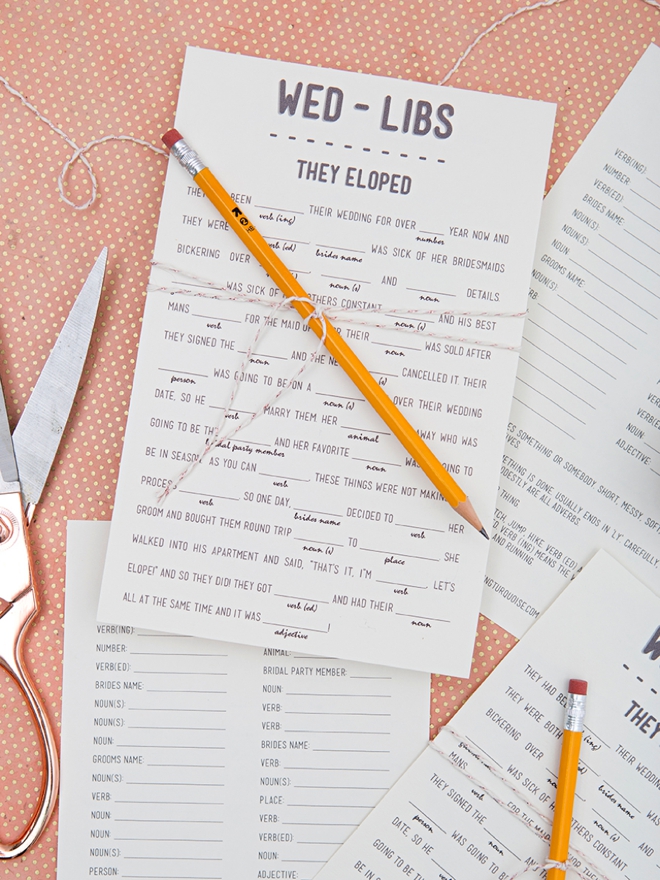 WED - LIBS
THEY ELOPED
BEEN ________ THEIR WEDDING FOR OVER ____ YEAR NOW AND
verb (ing) number
THEY WERE ________ WAS SICK OF HER BRIDESMAIDS
verb (ed) brides name
BICKERING OVER ________ AND ________ DETAILS
noun (s) noun
WAS SICK OF OTHERS CONSTANT ________ AND HIS BEST
noun (s)
MANS ________ FOR THE MAID OF THEIR ________ WAS SOLD AFTER
verb noun
THEY SIGNED THE ________ AND THE CANCELLED IT. THEIR
noun
________ WAS GOING TO BE ON A ________ OVER THEIR WEDDING
person noun (s)
DATE, SO HE ________ MARRY THEM. HER ________ AWAY WHO WAS
verb animal
GOING TO BE ________ AND HER FAVORITE ________ GOING TO
bridal party member noun
BE IN SEASON. AS YOU CAN ________, THESE THINGS WERE NOT MAKING
verb
PROCESS ________. SO ONE DAY, ________ DECIDED TO ________ HER
verb brides name verb
GROOM AND BOUGHT THEM ROUND TRIP ________ TO ________. SHE
noun (s) place
WALKED INTO HIS APARTMENT AND SAID, "THAT'S IT, I'M ________, LET'S
verb
ELOPE!" AND SO THEY DID! THEY GOT ________ AND HAD THEIR ________
verb (ed) noun
ALL AT THE SAME TIME AND IT WAS ________!
adjective
VERB(ING):
NUMBER:
VERB(ED):
BRIDES NAME:
NOUN(S):
NOUN(S):
NOUN:
GROOMS NAME:
NOUN(S):
VERB:
NOUN:
NOUN:
NOUN(S):
PERSON:
ANIMAL:
BRIDAL PARTY MEMBER:
NOUN:
VERB:
VERB:
BRIDES NAME:
VERB:
NOUN(S):
PLACE:
VERB:
VERB(ED):
NOUN:
ADJECTIVE:
VERB(ING):
NUMBER:
VERB(ED):
BRIDES NAME:
NOUN(S):
NOUN(S):
NOUN:
GROOMS NAME:
NOUN(S):
ADJECTIVE:
SOMETHING OR SOMEBODY. SHORT, MESSY, SOFT,
THING IS DONE. USUALLY ENDS IN 'LY'. CAREFULLY,
MODESTLY ARE ALL ADVERBS.
THING
JUMP, HIKE. VERB (ED)
VERB (ING) MEANS THE
AND RUNNING.
THEY HAD BEEN ________ THEIR WEDDING
THEY WERE BOTH
BICKERING OVER ________
brides name
WAS SICK OF
noun (s)
MANS ________ FOR THE MAID
verb
THEY SIGNED THE ________
noun
________ WAS GOING
person
DATE, SO HE
verb
GOING TO BE
BE IN